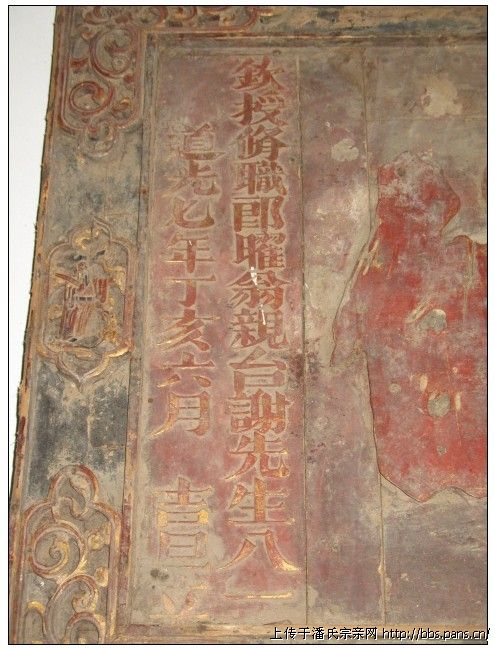 欽授脩職郎曜翁親台謝先生八一
道光七年丁亥六月 吉旦立
上传于潘氏宗亲网 http://bbs.pans.cn/